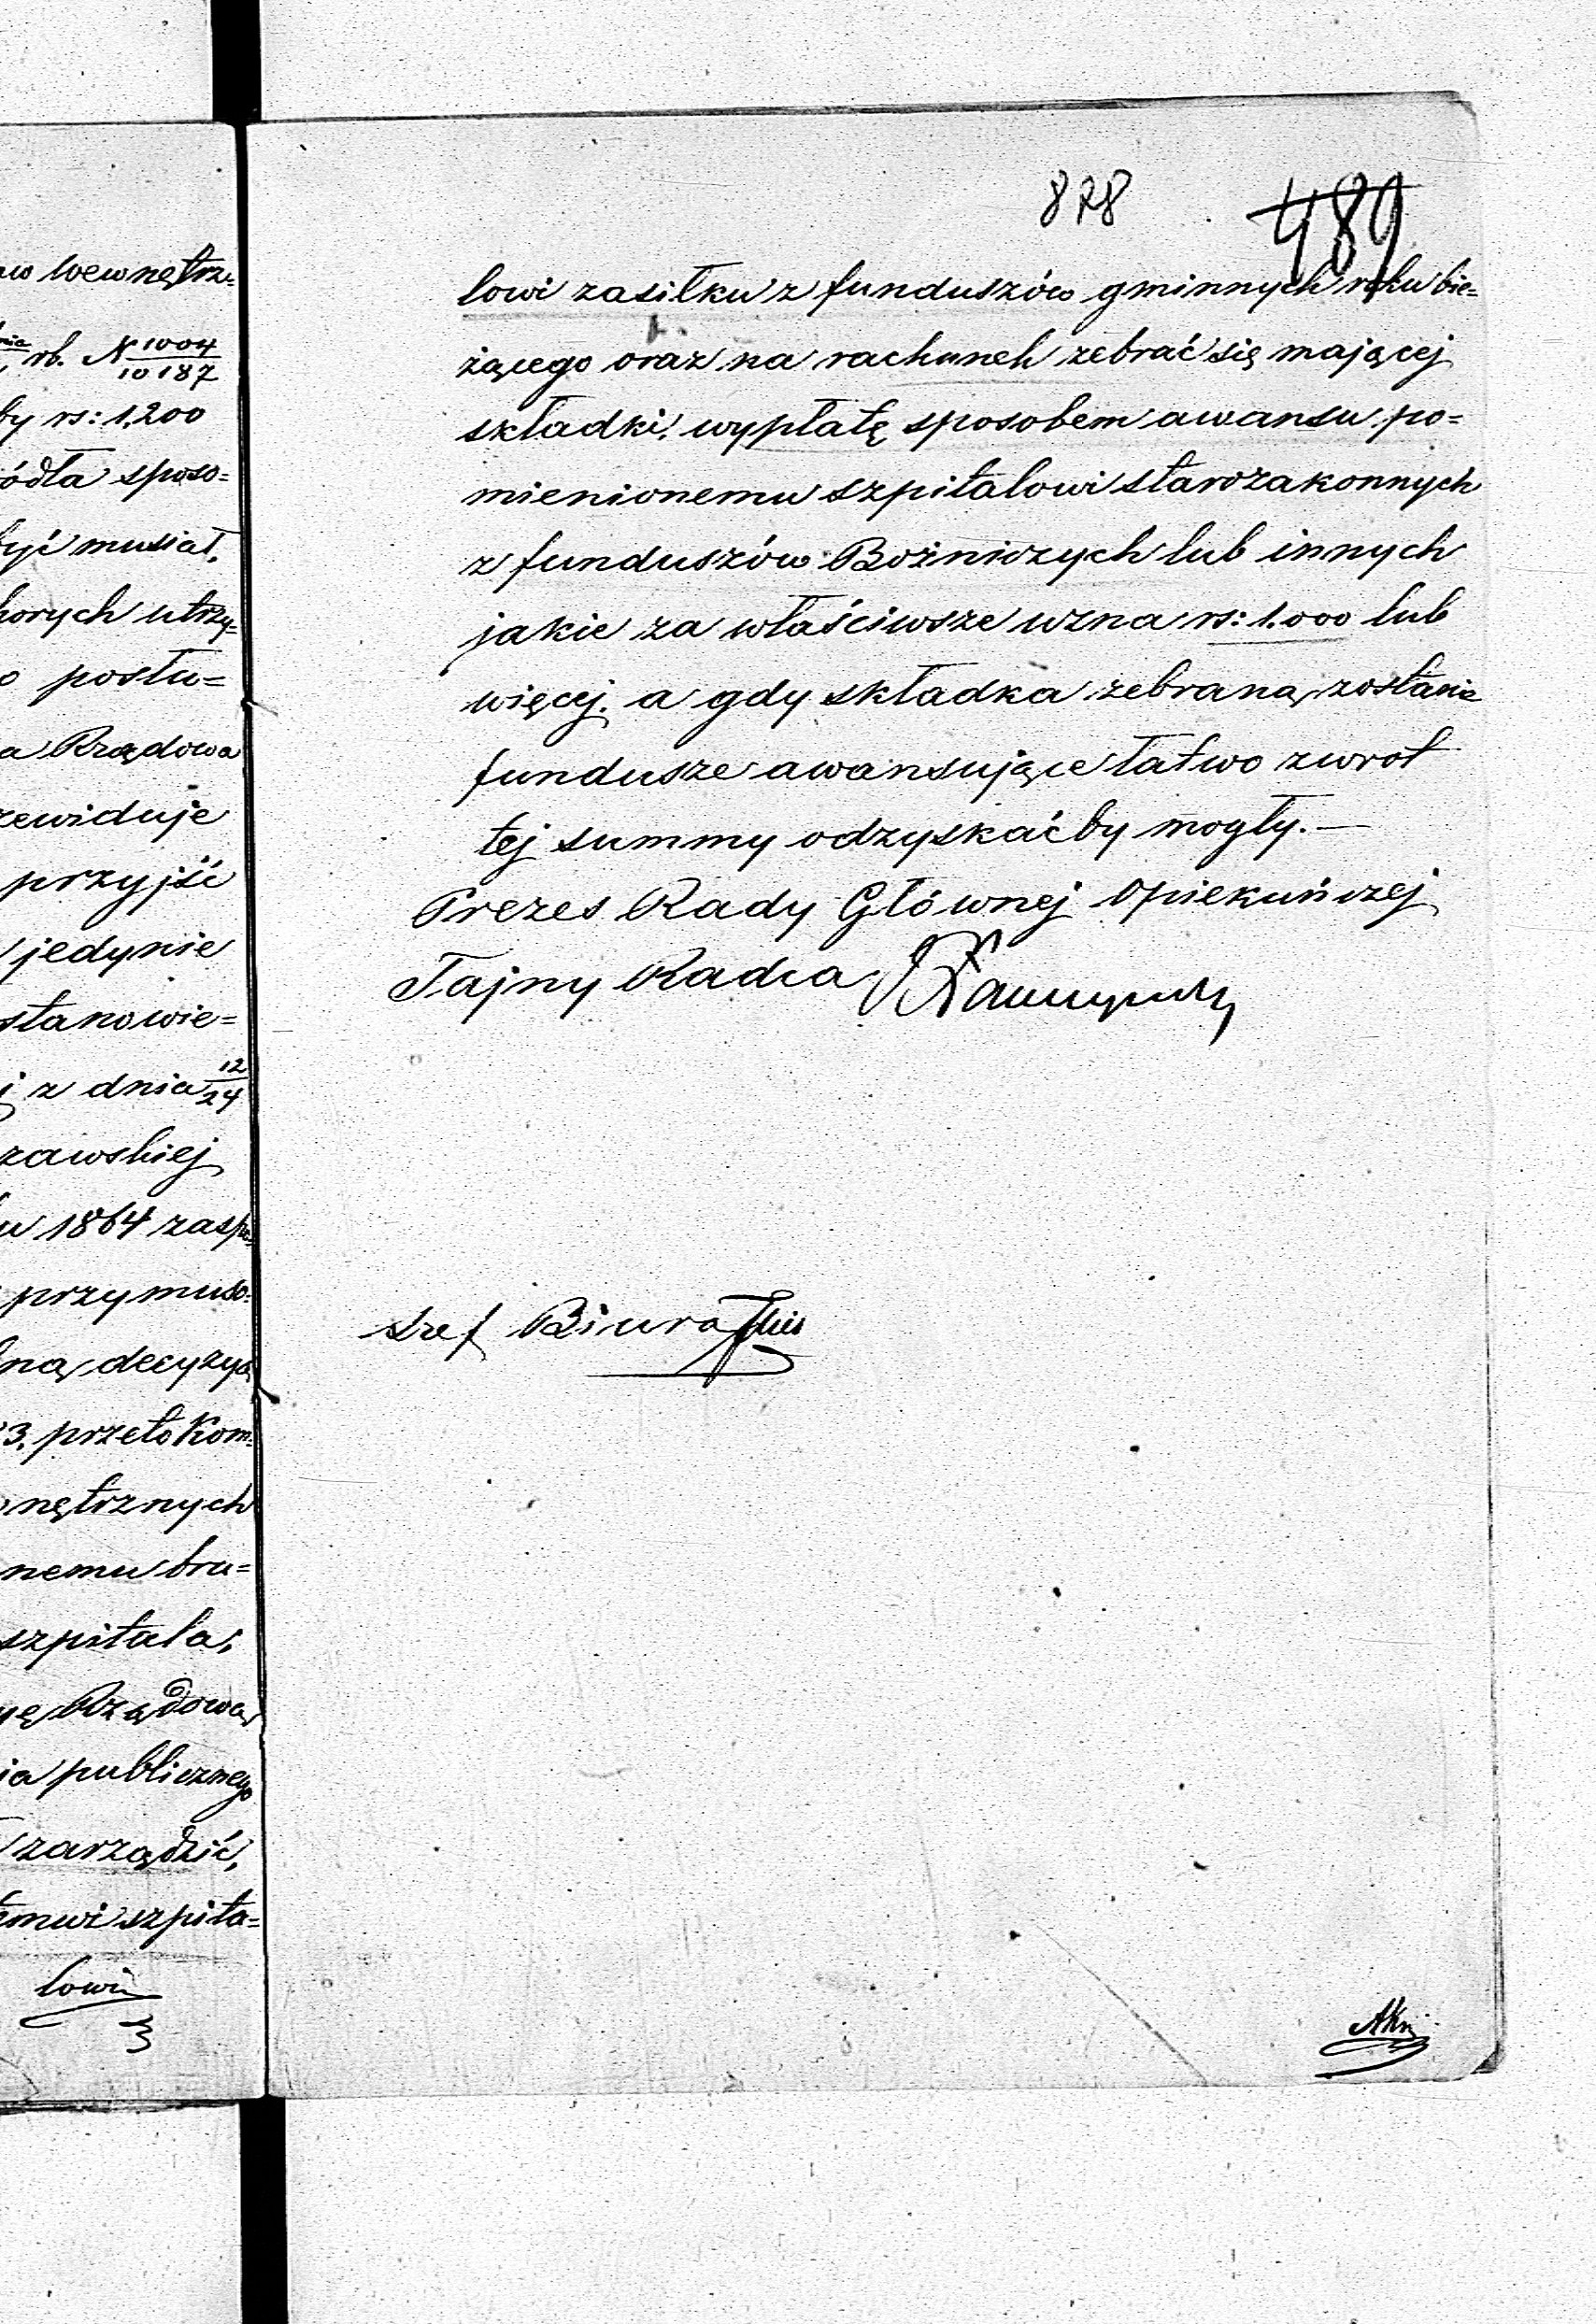 aw Wewnętrz=
nia rb. N 1004/10187
by rs: 1,200
ódła sposo=
być musiał,
horych utrzy=
o posłu=
a Rządowa
zewiduje
przyjść
jedynie
stanowie=
j z dnia 12/24
zawskiej
u 1864 zaspo=
przymuso=
lną decyzyą
3. przeto Kom=
nętrznych
nemu bra=
szpitala,
yę Rządową
ia publicznego
zarządzić,
emwi szpita=
lowi
878 489
lowi zasiłku z funduszów gminnych roku bie=
żącego oraz na rachunek zebrać się mającej
składki, wypłatę sposobem awansu po=
mienionemu szpitalowi starozakonnych
z funduszów Bożniczych lub innych
jakie za właściwsze uzna rs: 1.000 lub
więcej. a gdy składka zebraną zostanie
fundusze awansujące łatwo zwrot
tej summy odzyskać by mogły.—
Prezes Rady Głównej Opiekuńczej
Tajny Radca
Szef Biura